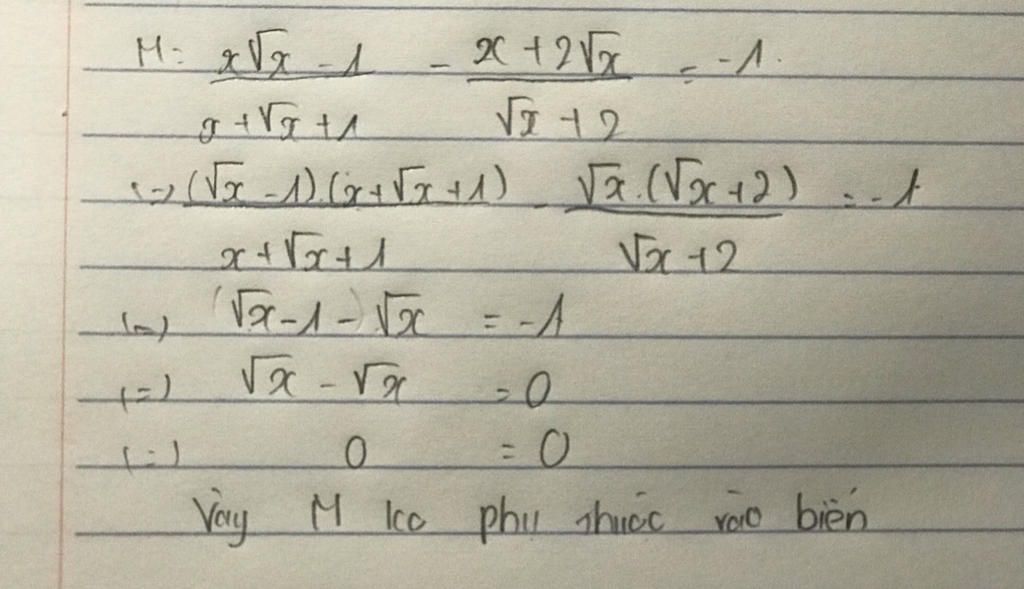 M = (x√x - 1)/(x + √x + 1) - (x + 2√x)/(√x + 2) = -1.
(=) ((√x - 1).(x + √x + 1))/(x + √x + 1) - (√x.(√x + 2))/(√x + 2) = -1
(=) (√x - 1 - √x = -1
(=) √x - √x = 0
(=) 0 = 0
Vậy M ko phụ thuộc vào biến